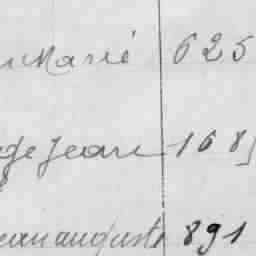 Marie 625
ge Jean 1685
ean auguste 891